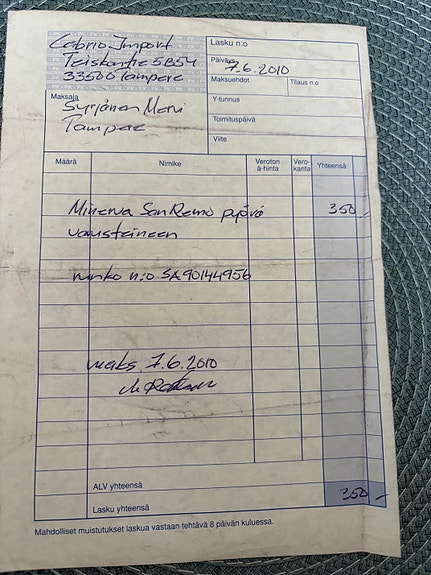 Cabrio-Import
Teiskontie 5 B 54
33500 Tampere
Lasku n:o
Päiväys
7.6.2010
Maksuehdot
Tilaus n:o
Maksaja
Syrjänen Meri
Tampere
Y-tunnus
Toimituspäivä
Viite
Määrä
Nimike
Veroton
à-hinta
Vero-
kanta
Yhteensä
Minerva San Remo pyörä 350,-
varusteineen
runko n:o SA90144956
maks 7.6.2010
ALV yhteensä
Lasku yhteensä
350,-
Mahdolliset muistutukset laskua vastaan tehtävä 8 päivän kuluessa.